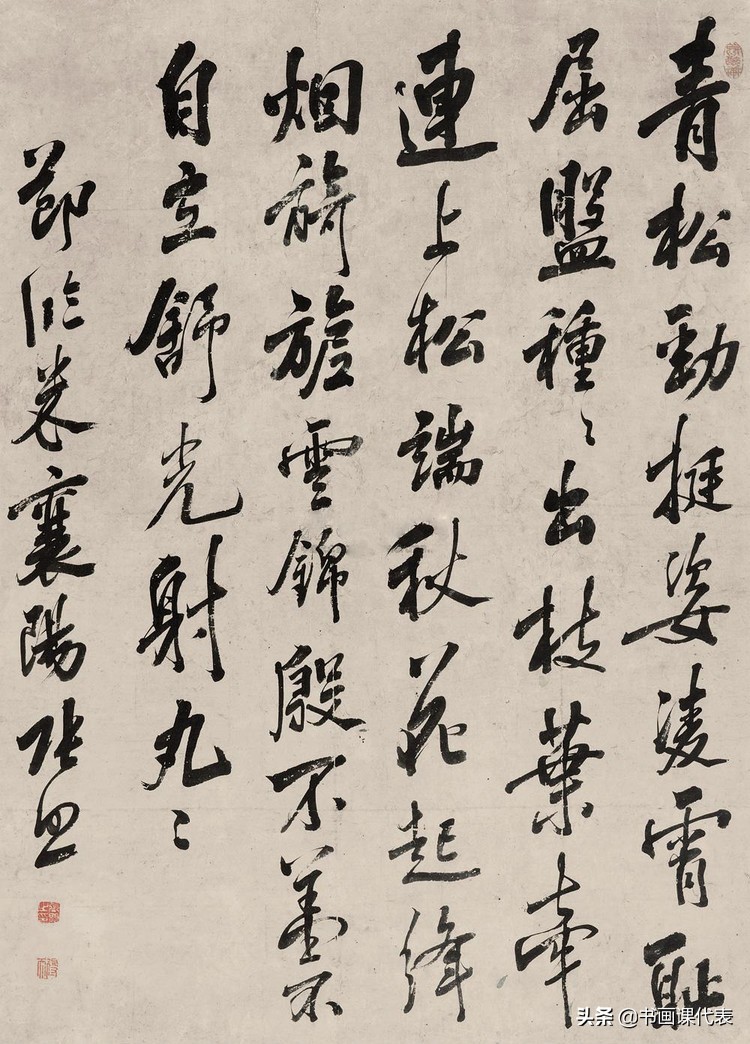 青松勁挺姿凌霄耻
屈盤種〻出枝葉牽
連上松端秋花起絳
烟旖旎雲錦殷不羞不
自立舒光射丸〻
節臨米襄陽張照
头条 @书画课代表